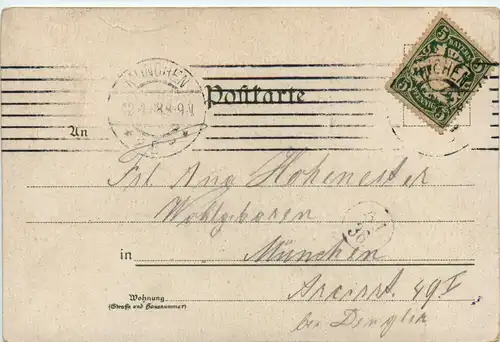 MÜNCHEN
8-9 V
Postkarte
5 BAYERN 5
An
Frl. Aug. Hohenester
Wohlgeboren
in München
Wohnung
(Straße und Hausnummer)
Arcisst. 49 I
bei Dengler